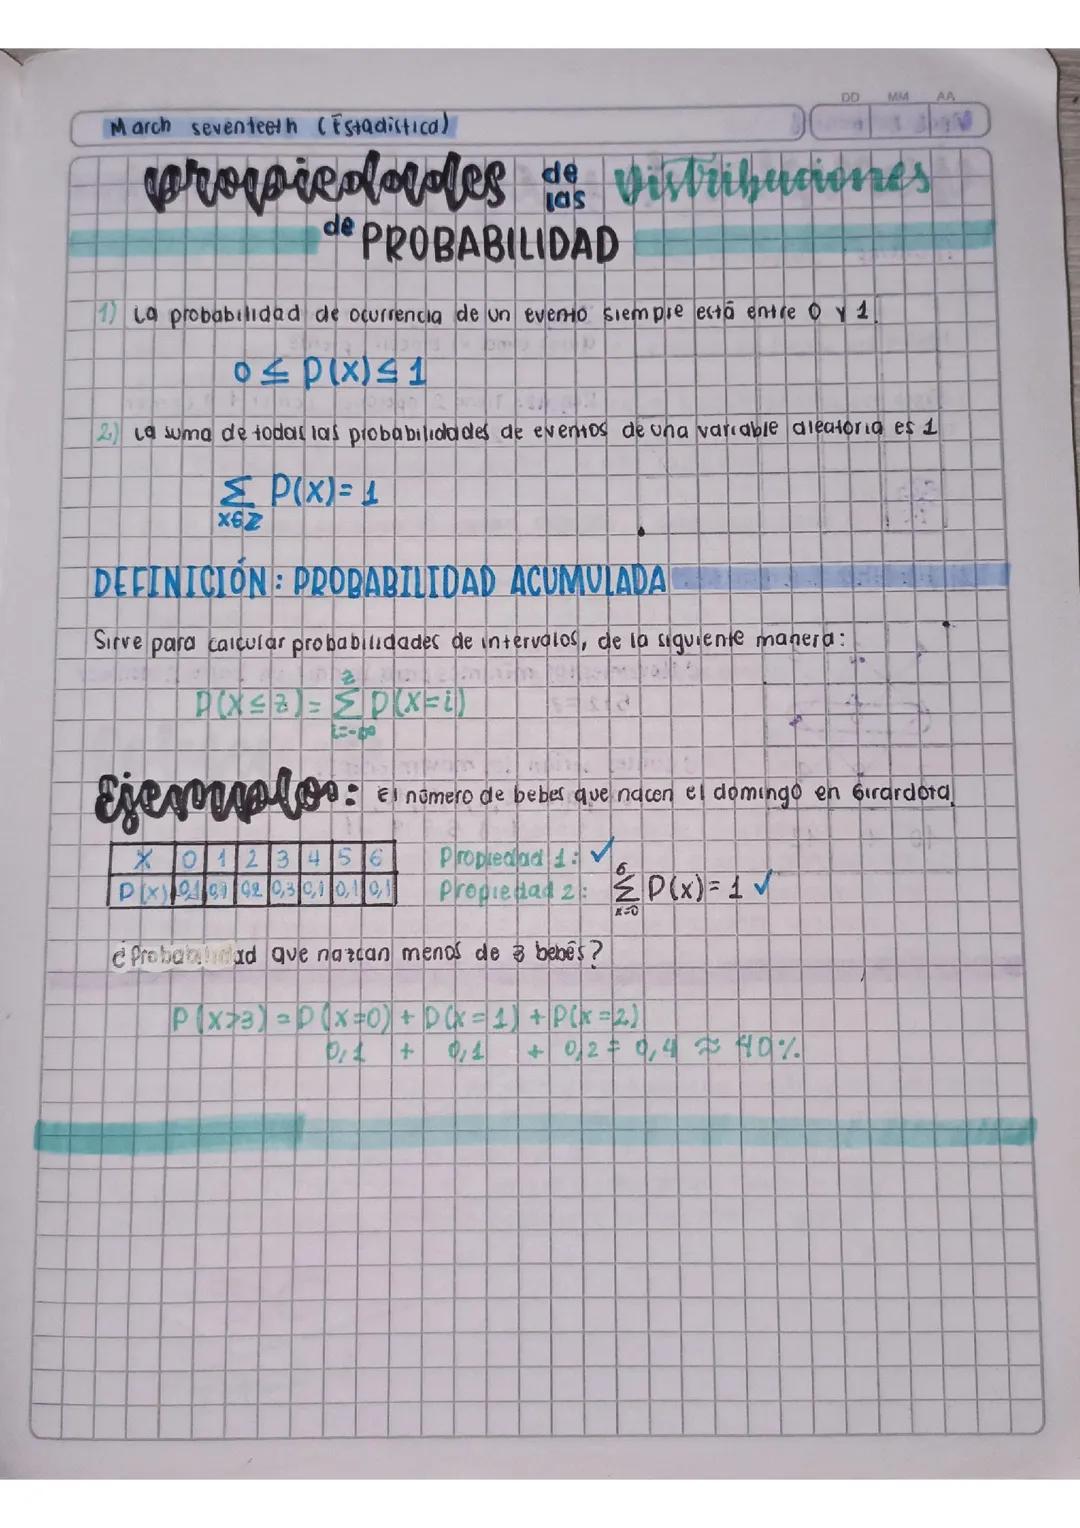 DD MM AA
March seventeeth (Estadistica)
Propiedades de las Distribuciones
de PROBABILIDAD
1) La probabilidad de ocurrencia de un evento siempre está entre 0 y 1.
0 ≤ P(x) ≤ 1
2) La suma de todas las probabilidades de eventos de una variable aleatoria es 1
Σ P(x) = 1
x∈Z
DEFINICIÓN: PROBABILIDAD ACUMULADA
Sirve para calcular probabilidades de intervalos, de la siguiente manera:
z
P(X ≤ z) = Σ P(X=i)
i=-∞
Ejemplo: El número de bebes que nacen el domingo en Girardota.
X 0 1 2 3 4 5 6 Propiedad 1: ✓
P(x) 0,1 0,1 0,2 0,3 0,1 0,1 0,1 Propiedad 2: 6 Σ x=0 P(x) = 1 ✓
¿Probabilidad que nazcan menos de 3 bebês?
P(x>3) = P(x=0) + P(x=1) + P(x=2)
0,1 + 0,1 + 0,2 = 0,4 ≈ 40%